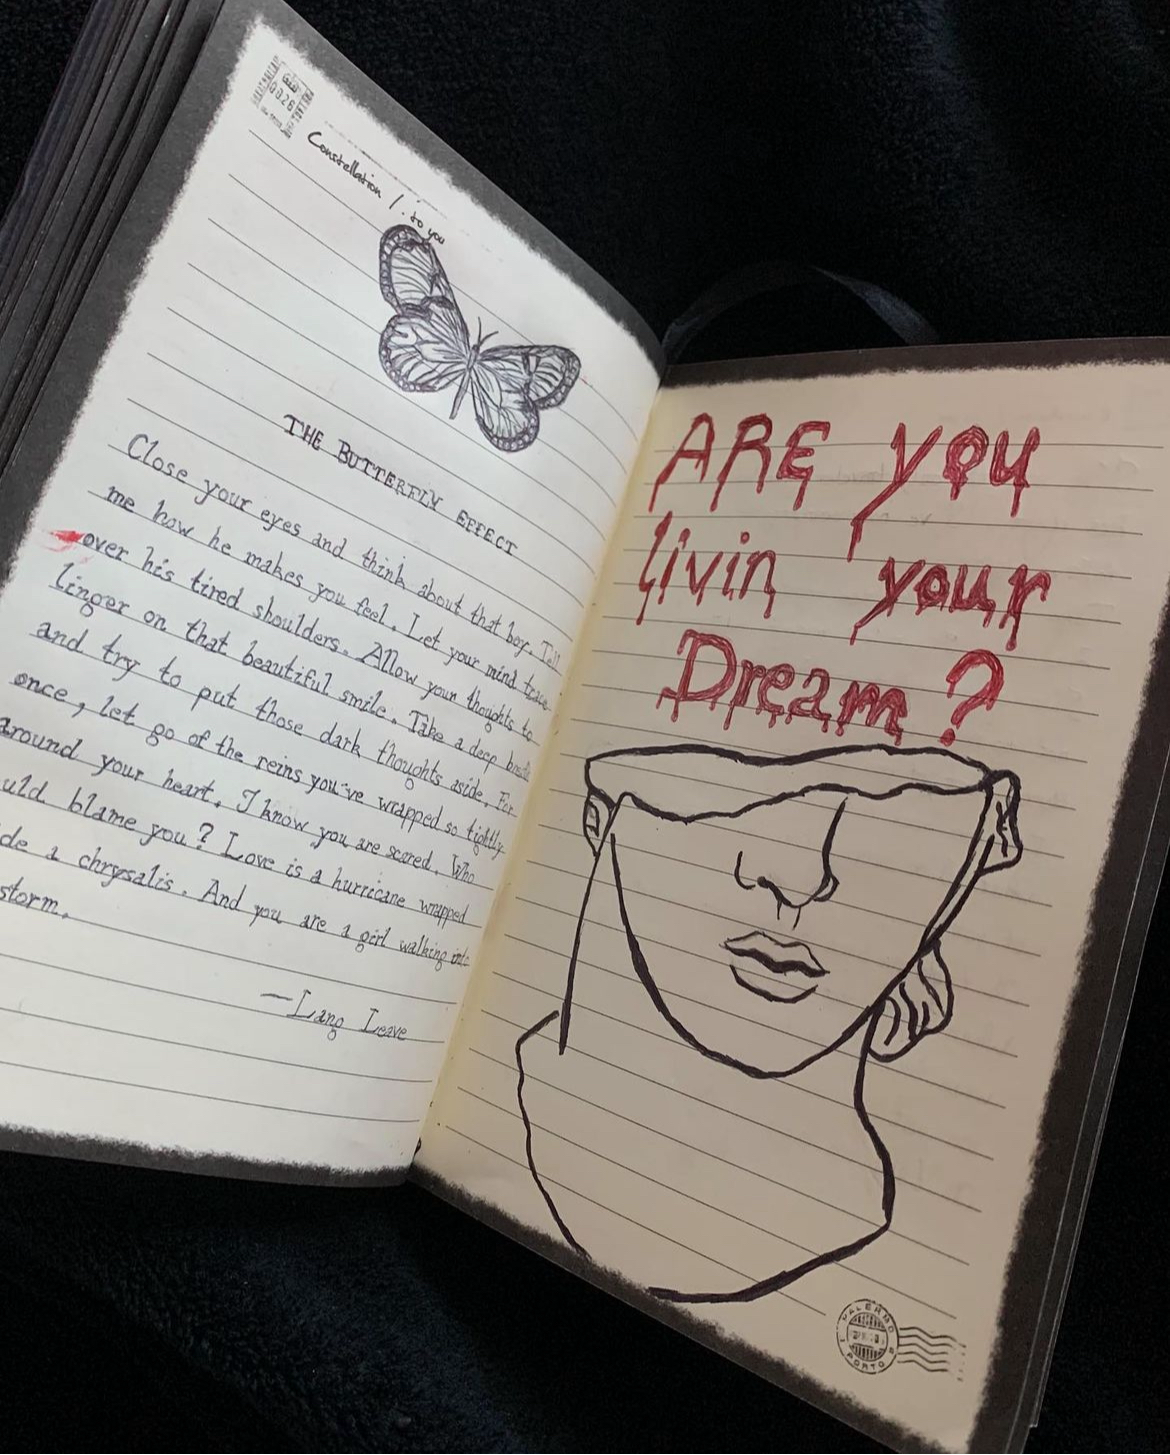 0826
Constellation / to you
THE BUTTERFLY EFFECT
Close your eyes and think about that boy. Tell
me how he makes you feel. Let your mind trace
over his tired shoulders. Allow your thoughts to
linger on that beautiful smile. Take a deep breath
and try to put those dark thoughts aside. For
once, let go of the reins you've wrapped so tightly
around your heart. I know you are scared. Who
uld blame you? Love is a hurricane wrapped
de a chrysalis. And you are a girl walking into
storm.
—Lang Leave
ARE you
livin your
Dream?
PALERMO
PORTO